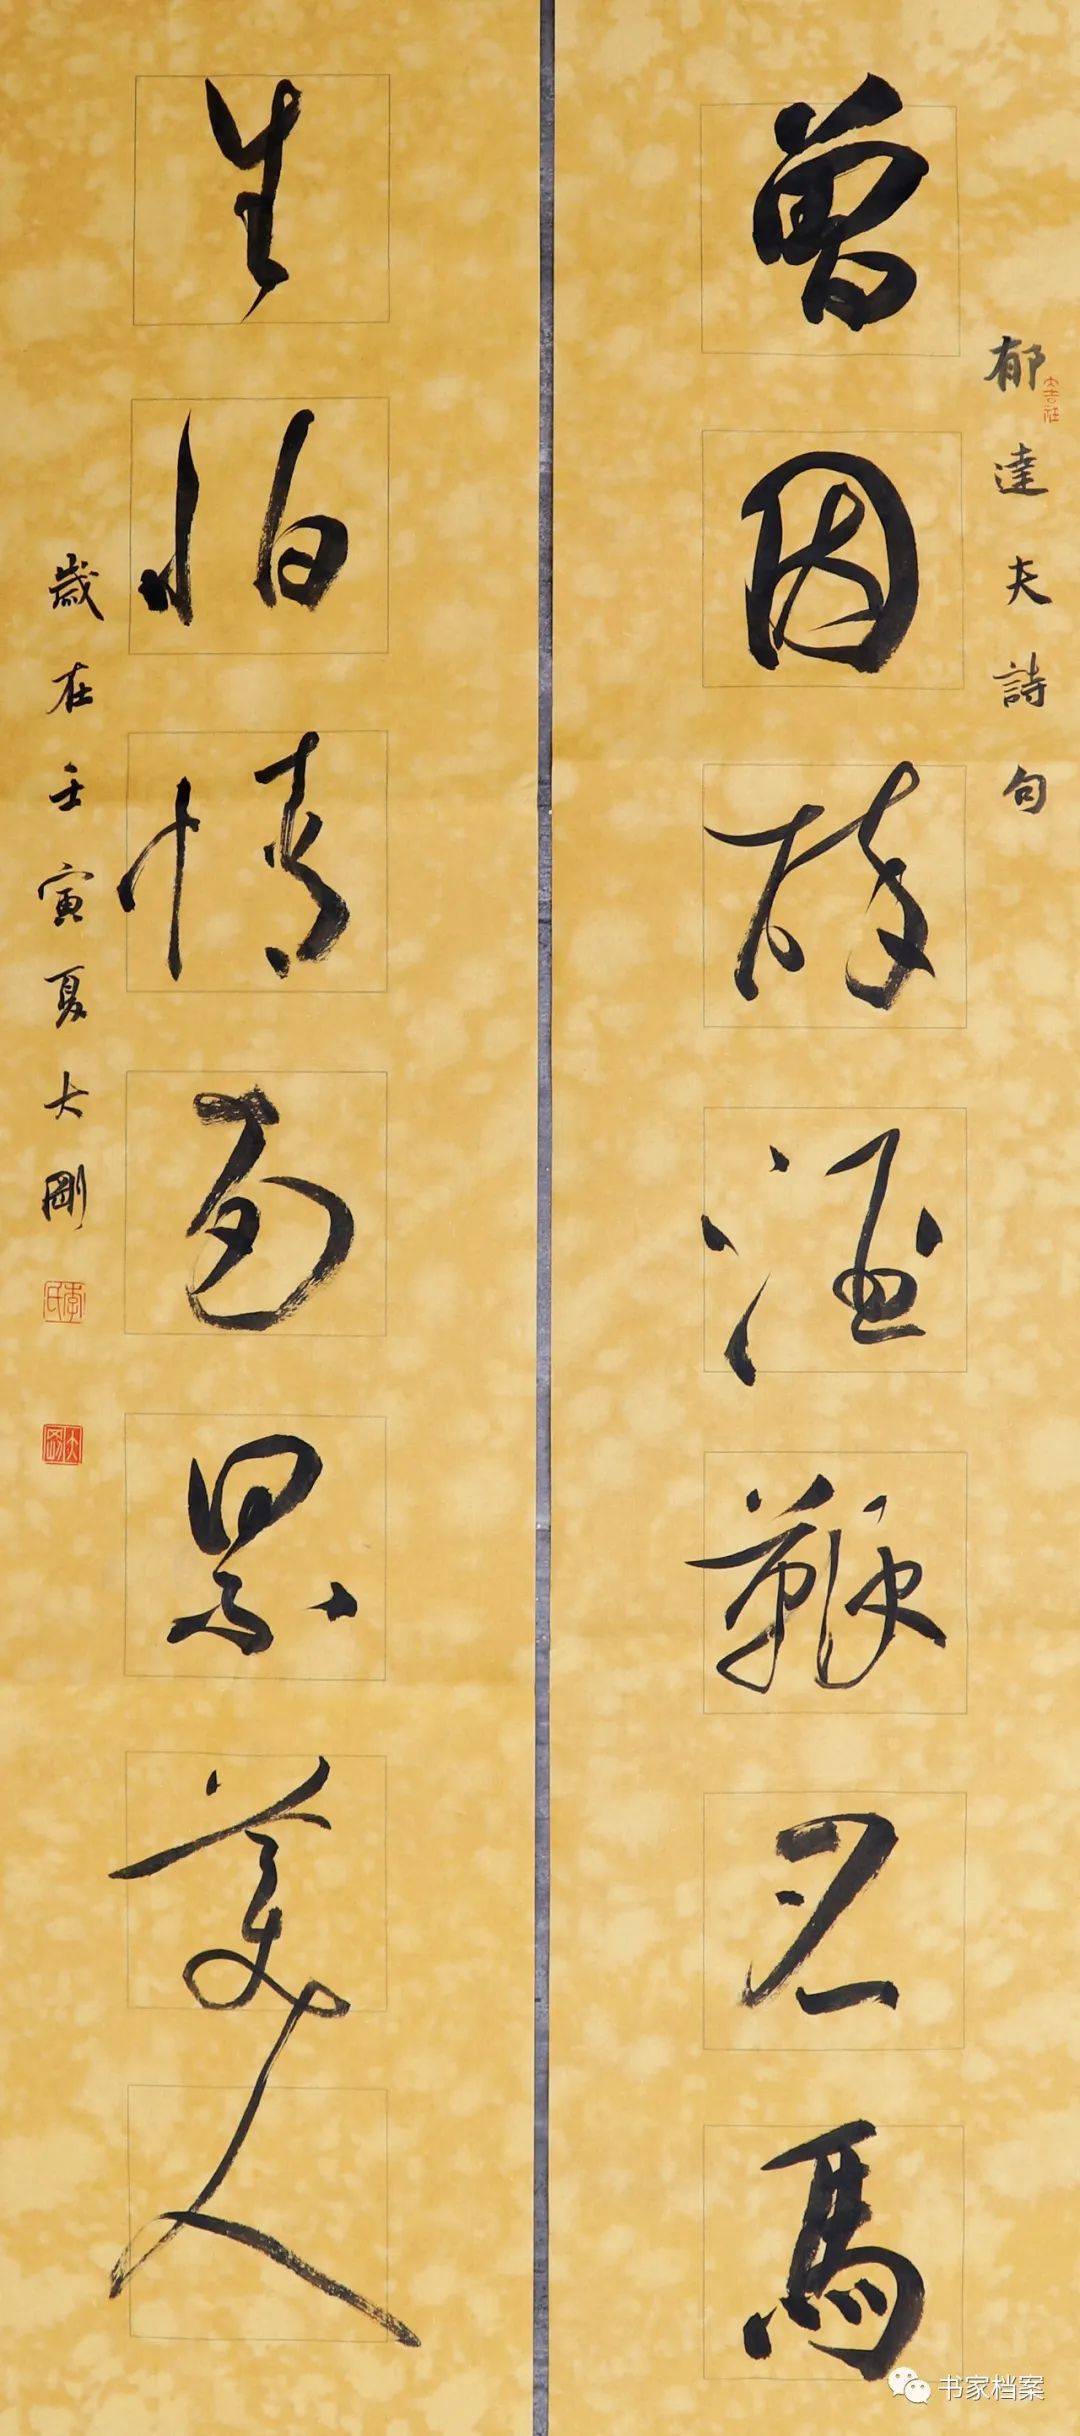 郁達夫詩句
曾因酔酒鞭名馬
生怕情多累美人
歲在壬寅夏大剛
李氏
大剛
书家档案